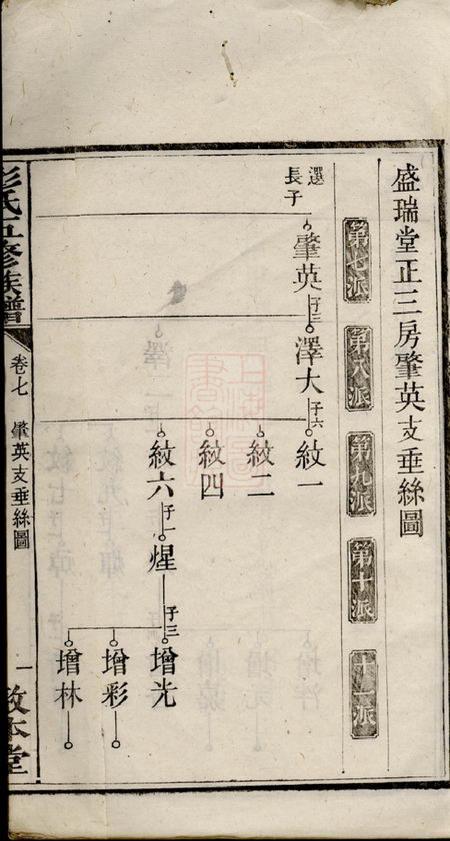 盛瑞堂正三房肇英支垂絲圖
第七派
第八派
第九派
第十派
十一派
選長子
肇英 子三
澤大 子六
紋一
紋二
紋四
紋六 子一
煋 子三
增光
增彩
增林
彭氏五修族譜
卷七
肇英支垂絲圖
一
敦本堂